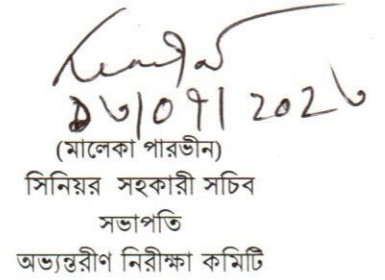 (মালেকা পারভীন)
সিনিয়র সহকারী সচিব
সভাপতি
অভ্যন্তরীণ নিরীক্ষা কমিটি